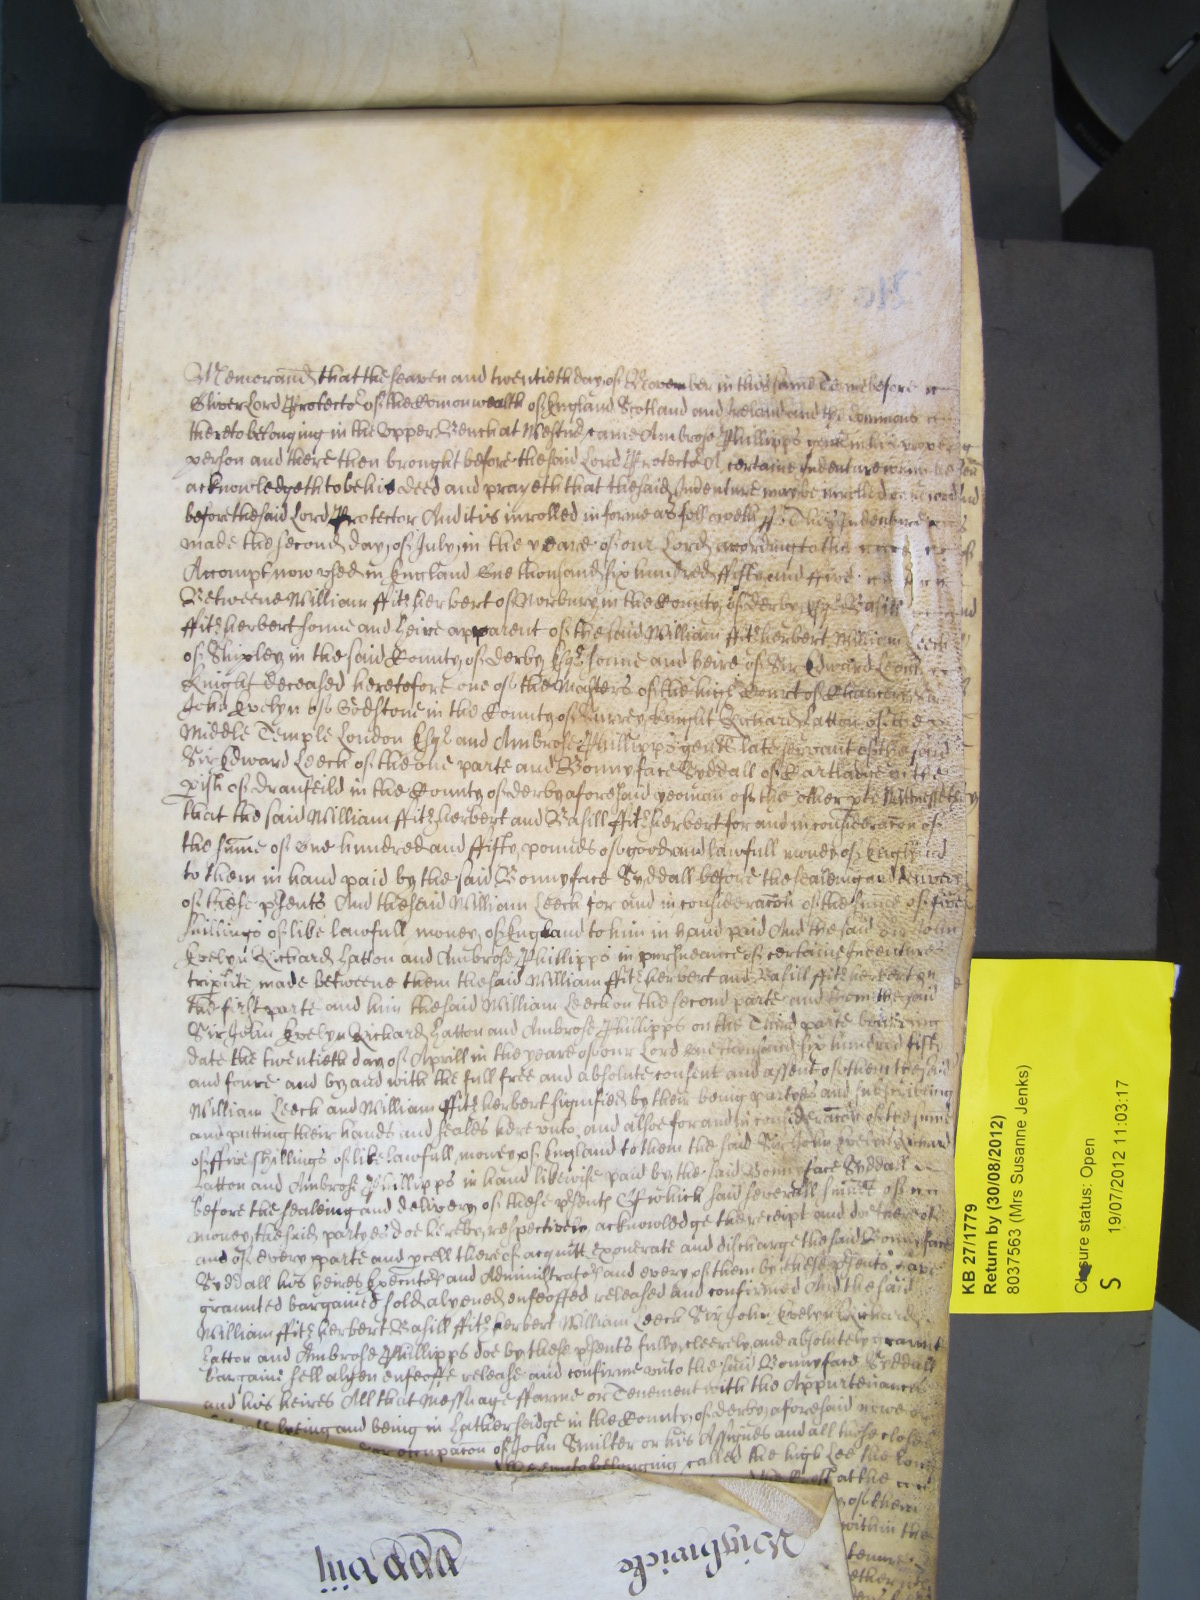 Memorand that the seaven and twentieth day of November in this same Terme before
Oliver Lord Protector of the Comonwealth of England Scotland and Ireland and the
thereto belonging in the Upper Bench at Westmr came Ambrose Phillipps gent in his proper
person and there then brought before the said Lord Protector A certaine Indenture
acknowledgeth to be his deed and prayeth that the said Indenture may be inrolled
before the said Lord Protector And it is inrolled in forme as followeth ss This Indenture
made the second day of July in the yeare of our Lord according to the
Accompt now used in England One thousand six hundred fifty and ffive
Betweene William ffitzherbert of Norbury in the County of Derby Esqr Basill
ffitzherbert sonne and heire apparent of the said William ffitzherbert William Leeck
of Shipley in the said County of Derby Esqr sonne and heire of Sr Edward Leeck
Knight deceased heretofore one of the Masters of the high Court of Chancery
John Evelyn of Godstone in the County of Surrey knight Richard Latton of the
Middle Temple London Esqr and Ambrose Phillipps gent late servant of the said
Sir Edward Leeck of the one parte and Bonnyface Syddall of Cartladge in the
pish of Dranfeild in the County of Derby aforesaid yeoman of the other pte Witnesseth
that the said William ffitzherbert and Basill ffitzherbert for and in consideracon of
the sume of one hundred and ffifty pounds of good and lawfull money of England
to them in hand paid by the said Bonnyface Syddall before the sealeing and delivery
of these psents And the said William Leeck for and in consideracon of the sume of five
shillings of like lawfull money of England to him in hand paid And the said Sir John
Evelyn Richard Latton and Ambrose Phillipps in pursueance of certaine Indentures
tripartite made betweene them the said William ffitzherbert and Basill ffitzherbert on
the first parte and him the said William Leeck on the second parte and them the said
Sir John Evelyn Richard Latton and Ambrose Phillipps on the Third parte beareing
date the twentieth day of Aprill in the yeare of our Lord one thousand six hundred fifty
and foure and by and with the full free and absolute consent and assent of them the said
William Leeck and William ffitzherbert signified by their being partyes and subscribeing
and putting their hands and seales hereunto and alsoe for and in consideracon of the sume
of ffive shillings of like lawfull money of England to them the said Sir John Evelyn Richard
Latton and Ambrose Phillipps in hand likewise paid by the said Bonnyface Syddall
before the sealeing and delivery of these psents Of which said severall sumes of
money the said partyes doe hereby respectively acknowledge the receipt and doe thereof
and of every parte and pcell thereof acquitt exonerate and discharge the said Bonnyface
Syddall his heires Executors and Administrators and every of them by these psents have
graunted bargained sold alyened enfeoffed released and confirmed And the said
William ffitzherbert Basill ffitzherbert William Leeck Sir John Evelyn Richard
Latton and Ambrose Phillipps doe by these psents fully cleerely and absolutely graunt
bargaine sell alyen enfeoffe release and confirme unto the said Bonnyface Syddall
and his heires All that Messuage ffarme or Tenement with the Appurtenances
lyeing and being in Hatherseidge in the County of Derby aforesaid nowe
or occupacon of John Smilter or his Assignes and all those closes
thereunto belonging called the high Lee the
at the
of them
within the
Wighwicke
KB 27/1779
Return by (30/08/2012)
8037563 (Mrs Susanne Jenks)
Closure status: Open
S 19/07/2012 11:03:17